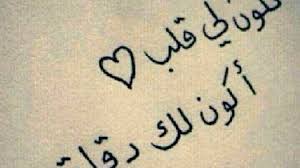 لي قلب ♡
أكون لك دقات